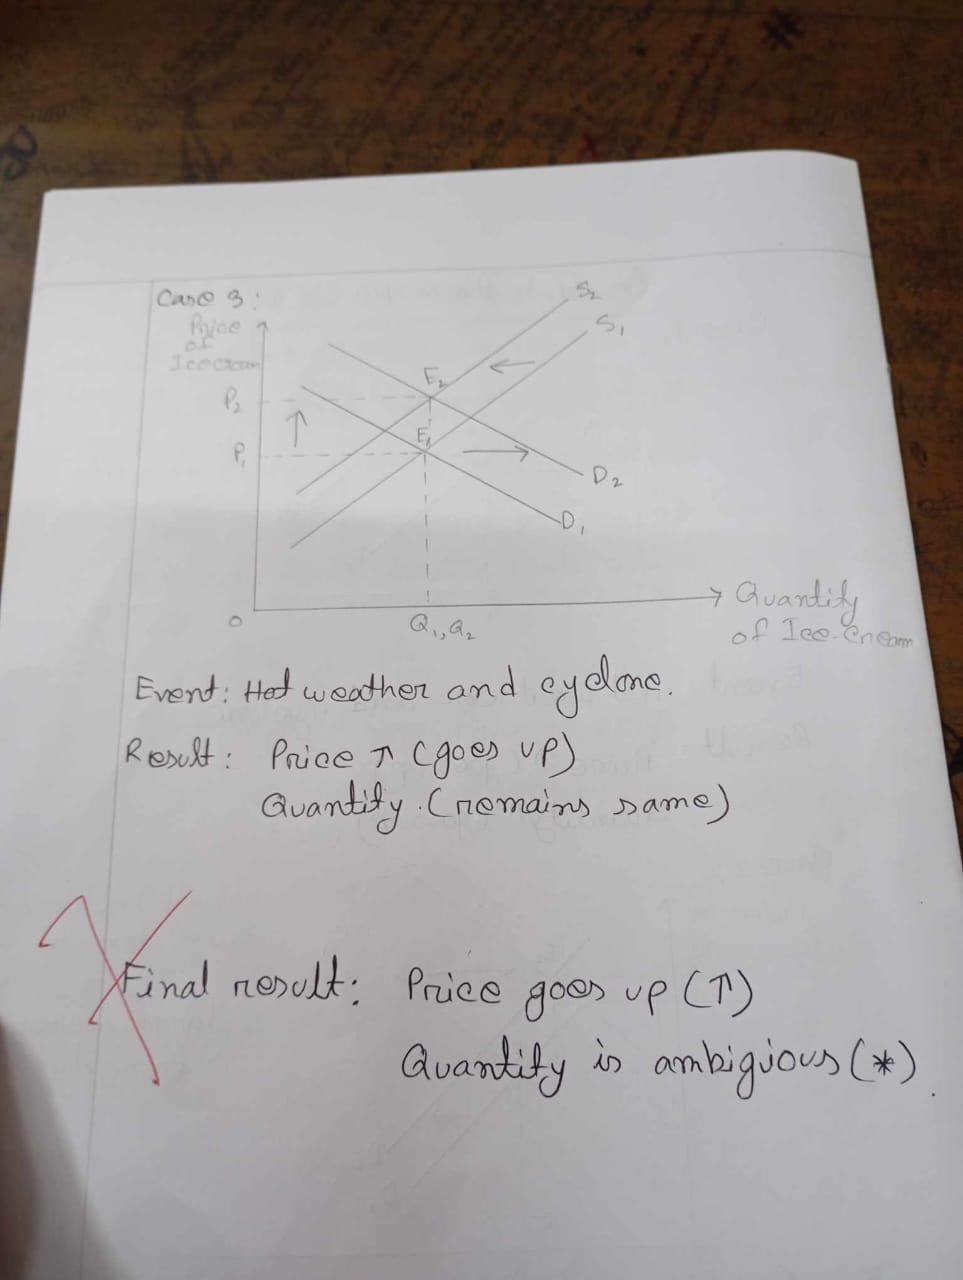 Case 3:
Price
of
Icecream
S₂
S₁
E₂
P₂
E₁
P₁
D₂
D₁
O
Q₁, Q₂
Quantity
of Ice-cream
Event: Hot weather and cyclone.
Result: Price ↑ (goes up)
Quantity. (remains same)
Final result: Price goes up (↑)
Quantity is ambigious (*).